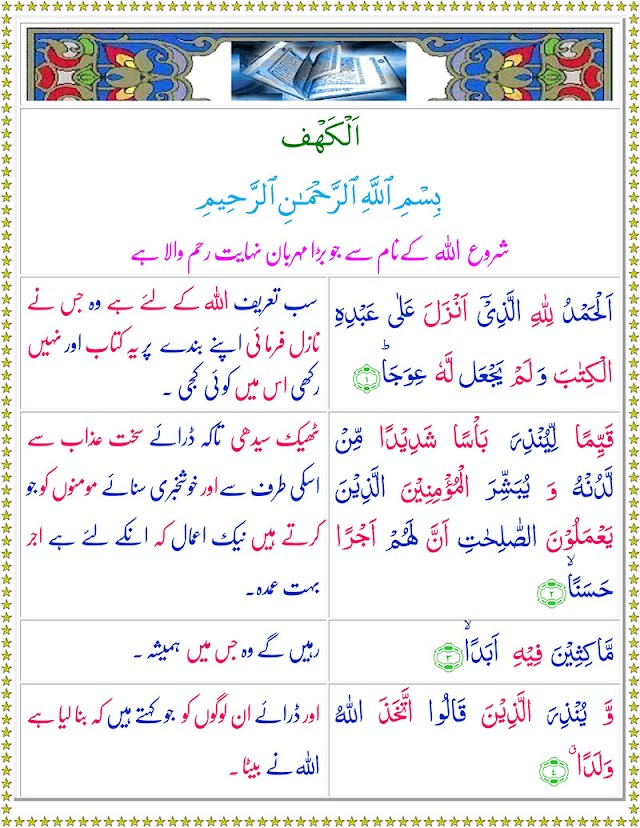 اَلْكَهْف
بِسْمِ ٱللَّهِ ٱلرَّحْمَـٰنِ ٱلرَّحِيمِ
شروع اللہ کے نام سے جو بڑا مہربان نہایت رحم والا ہے
اَلْحَمْدُ لِلّٰهِ الَّذِیْۤ اَنْزَلَ عَلٰی عَبْدِهِ
الْكِتٰبَ وَلَمْ یَجْعَل لَّهٗ عِوَجًا ؕ ﴿۱﴾
سب تعریف اللہ کے لئے ہے وہ جس نے
نازل فرمائی اپنے بندے پر یہ کتاب اور نہیں
رکھی اس میں کوئی کجی ۔
قَیِّمًا لِّیُنْذِرَ بَاْسًا شَدِیْدًا مِّنْ
لَّدُنْهُ وَ یُبَشِّرَ الْمُؤْمِنِیْنَ الَّذِیْنَ
یَعْمَلُوْنَ الصّٰلِحٰتِ اَنَّ لَهُمْ اَجْرًا
حَسَنًا ۙ ﴿۲﴾
ٹھیک سیدھی تاکہ ڈرائے سخت عذاب سے
اسکی طرف سے اور خوشخبری سنائے مومنوں کو جو
کرتے ہیں نیک اعمال کہ انکے لئے ہے اجر
بہت عمدہ۔
مَّاكِثِیْنَ فِیْهِ اَبَدًا ۙ ﴿۳﴾
رہیں گے وہ جس میں ہمیشہ ۔
وَّ یُنْذِرَ الَّذِیْنَ قَالُوا اتَّخَذَ اللّٰهُ
وَلَدًا ۗ ﴿۴﴾
اور ڈرائے ان لوگوں کو جو کہتے ہیں کہ بنا لیا ہے
اللہ نے بیٹا ۔